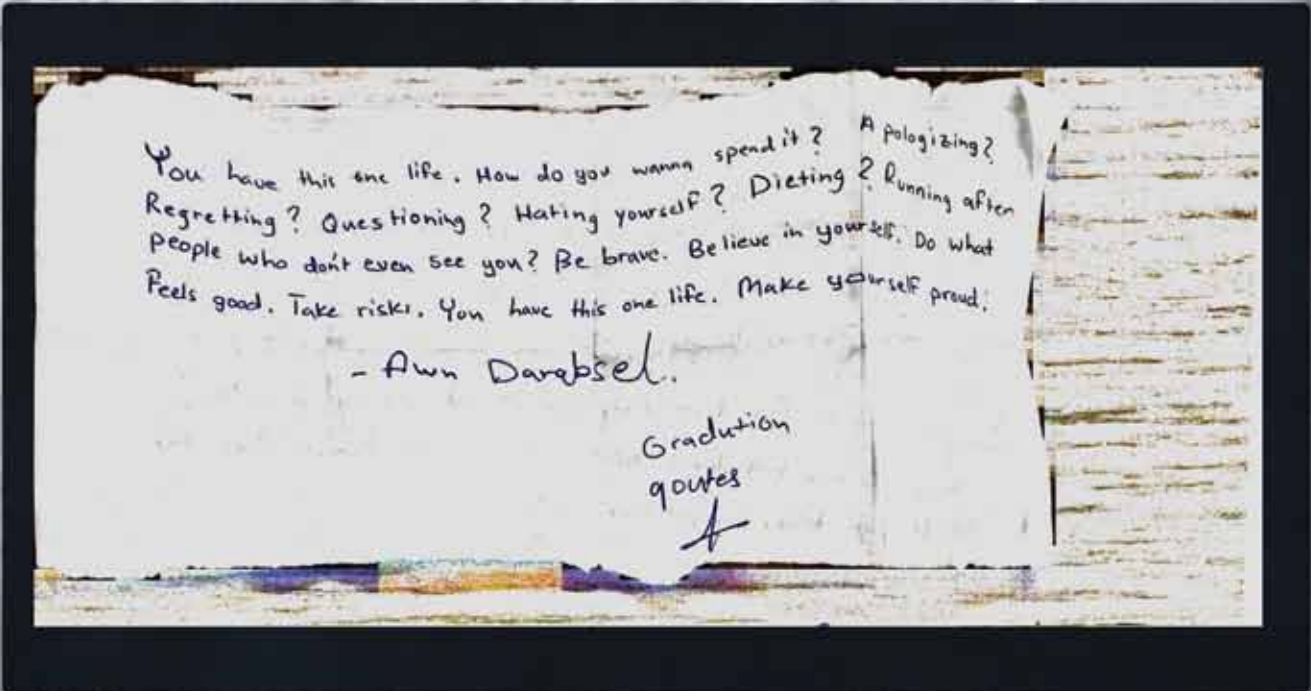 You have this one life. How do you wanna spend it? Apologizing?
Regretting? Questioning? Hating yourself? Dieting? Running after
people who don't even see you? Be brave. Believe in yourself. Do what
Feels good. Take risks. You have this one life. Make yourself proud.
- Awn Darabsel.
Gradution
qoutes